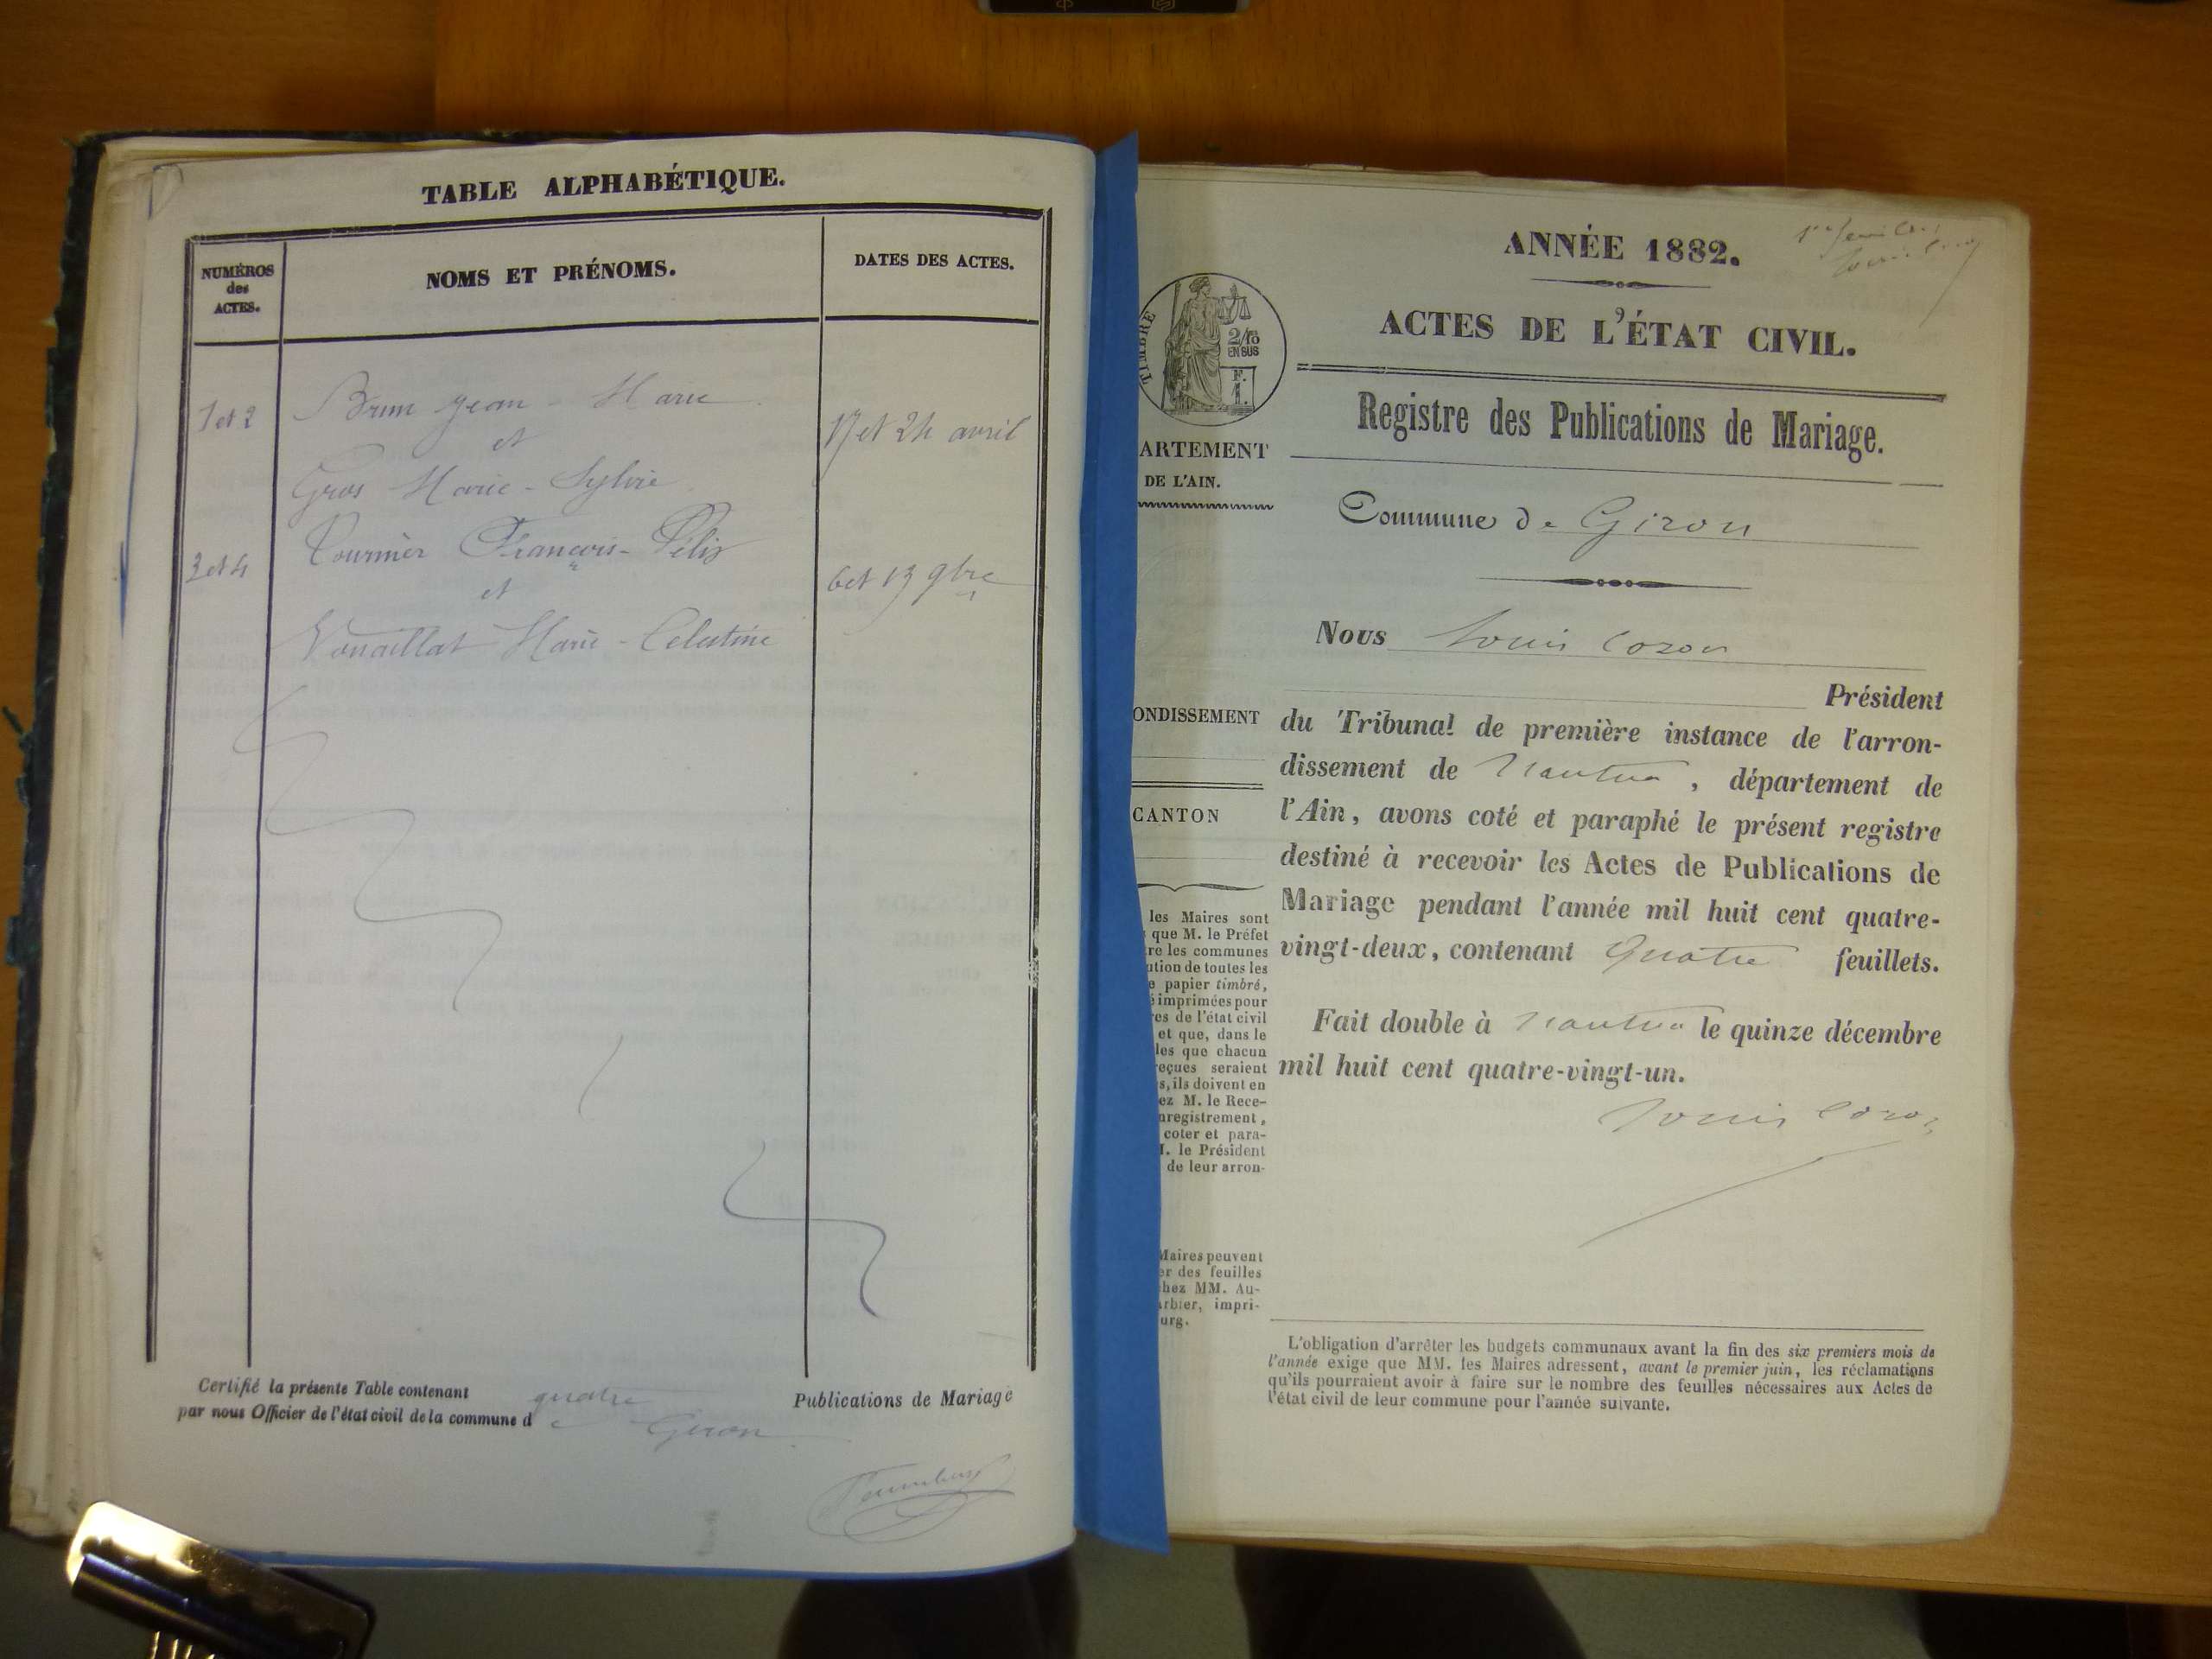 TABLE ALPHABÉTIQUE.
NUMÉROS
des
ACTES.
NOMS ET PRÉNOMS.
DATES DES ACTES.
1 et 2
Brun Jean-Marie
et
Gros Marie-Sylvie
17 et 24 avril
3 et 4
Tournier François-Félix
et
Vouaillat Marie-Célestine
6 et 13 9bre
Certifié la présente Table contenant quatre Publications de Mariage
par nous Officier de l'état civil de la commune d e Giron
ANNÉE 1882.
ACTES DE L'ÉTAT CIVIL.
TIMBRE
2/10
EN SUS
F.
1.
Registre des Publications de Mariage.
ARTEMENT
DE L'AIN.
Commune de Giron
Nous Louis Cozon
Président
ONDISSEMENT
du Tribunal de première instance de l'arron-
dissement de Nantua, département de
l'Ain, avons coté et paraphé le présent registre
CANTON
destiné à recevoir les Actes de Publications de
Mariage pendant l'année mil huit cent quatre-
vingt-deux, contenant Quatre feuillets.
Fait double à Nantua le quinze décembre
mil huit cent quatre-vingt-un.
Louis Cozon
les Maires sont
que M. le Préfet
re les communes
ution de toutes les
e papier timbré,
é imprimées pour
res de l'état civil
et que, dans le
les que chacun
reçues seraient
s, ils doivent en
ez M. le Rece-
nregistrement,
coter et para-
M. le Président
de leur arron-
Maires peuvent
er des feuilles
chez MM. Au-
rbier, impri-
urg.
L'obligation d'arrêter les budgets communaux avant la fin des six premiers mois de
l'année exige que MM. les Maires adressent, avant le premier juin, les réclamations
qu'ils pourraient avoir à faire sur le nombre des feuilles nécessaires aux Actes de
l'état civil de leur commune pour l'année suivante.